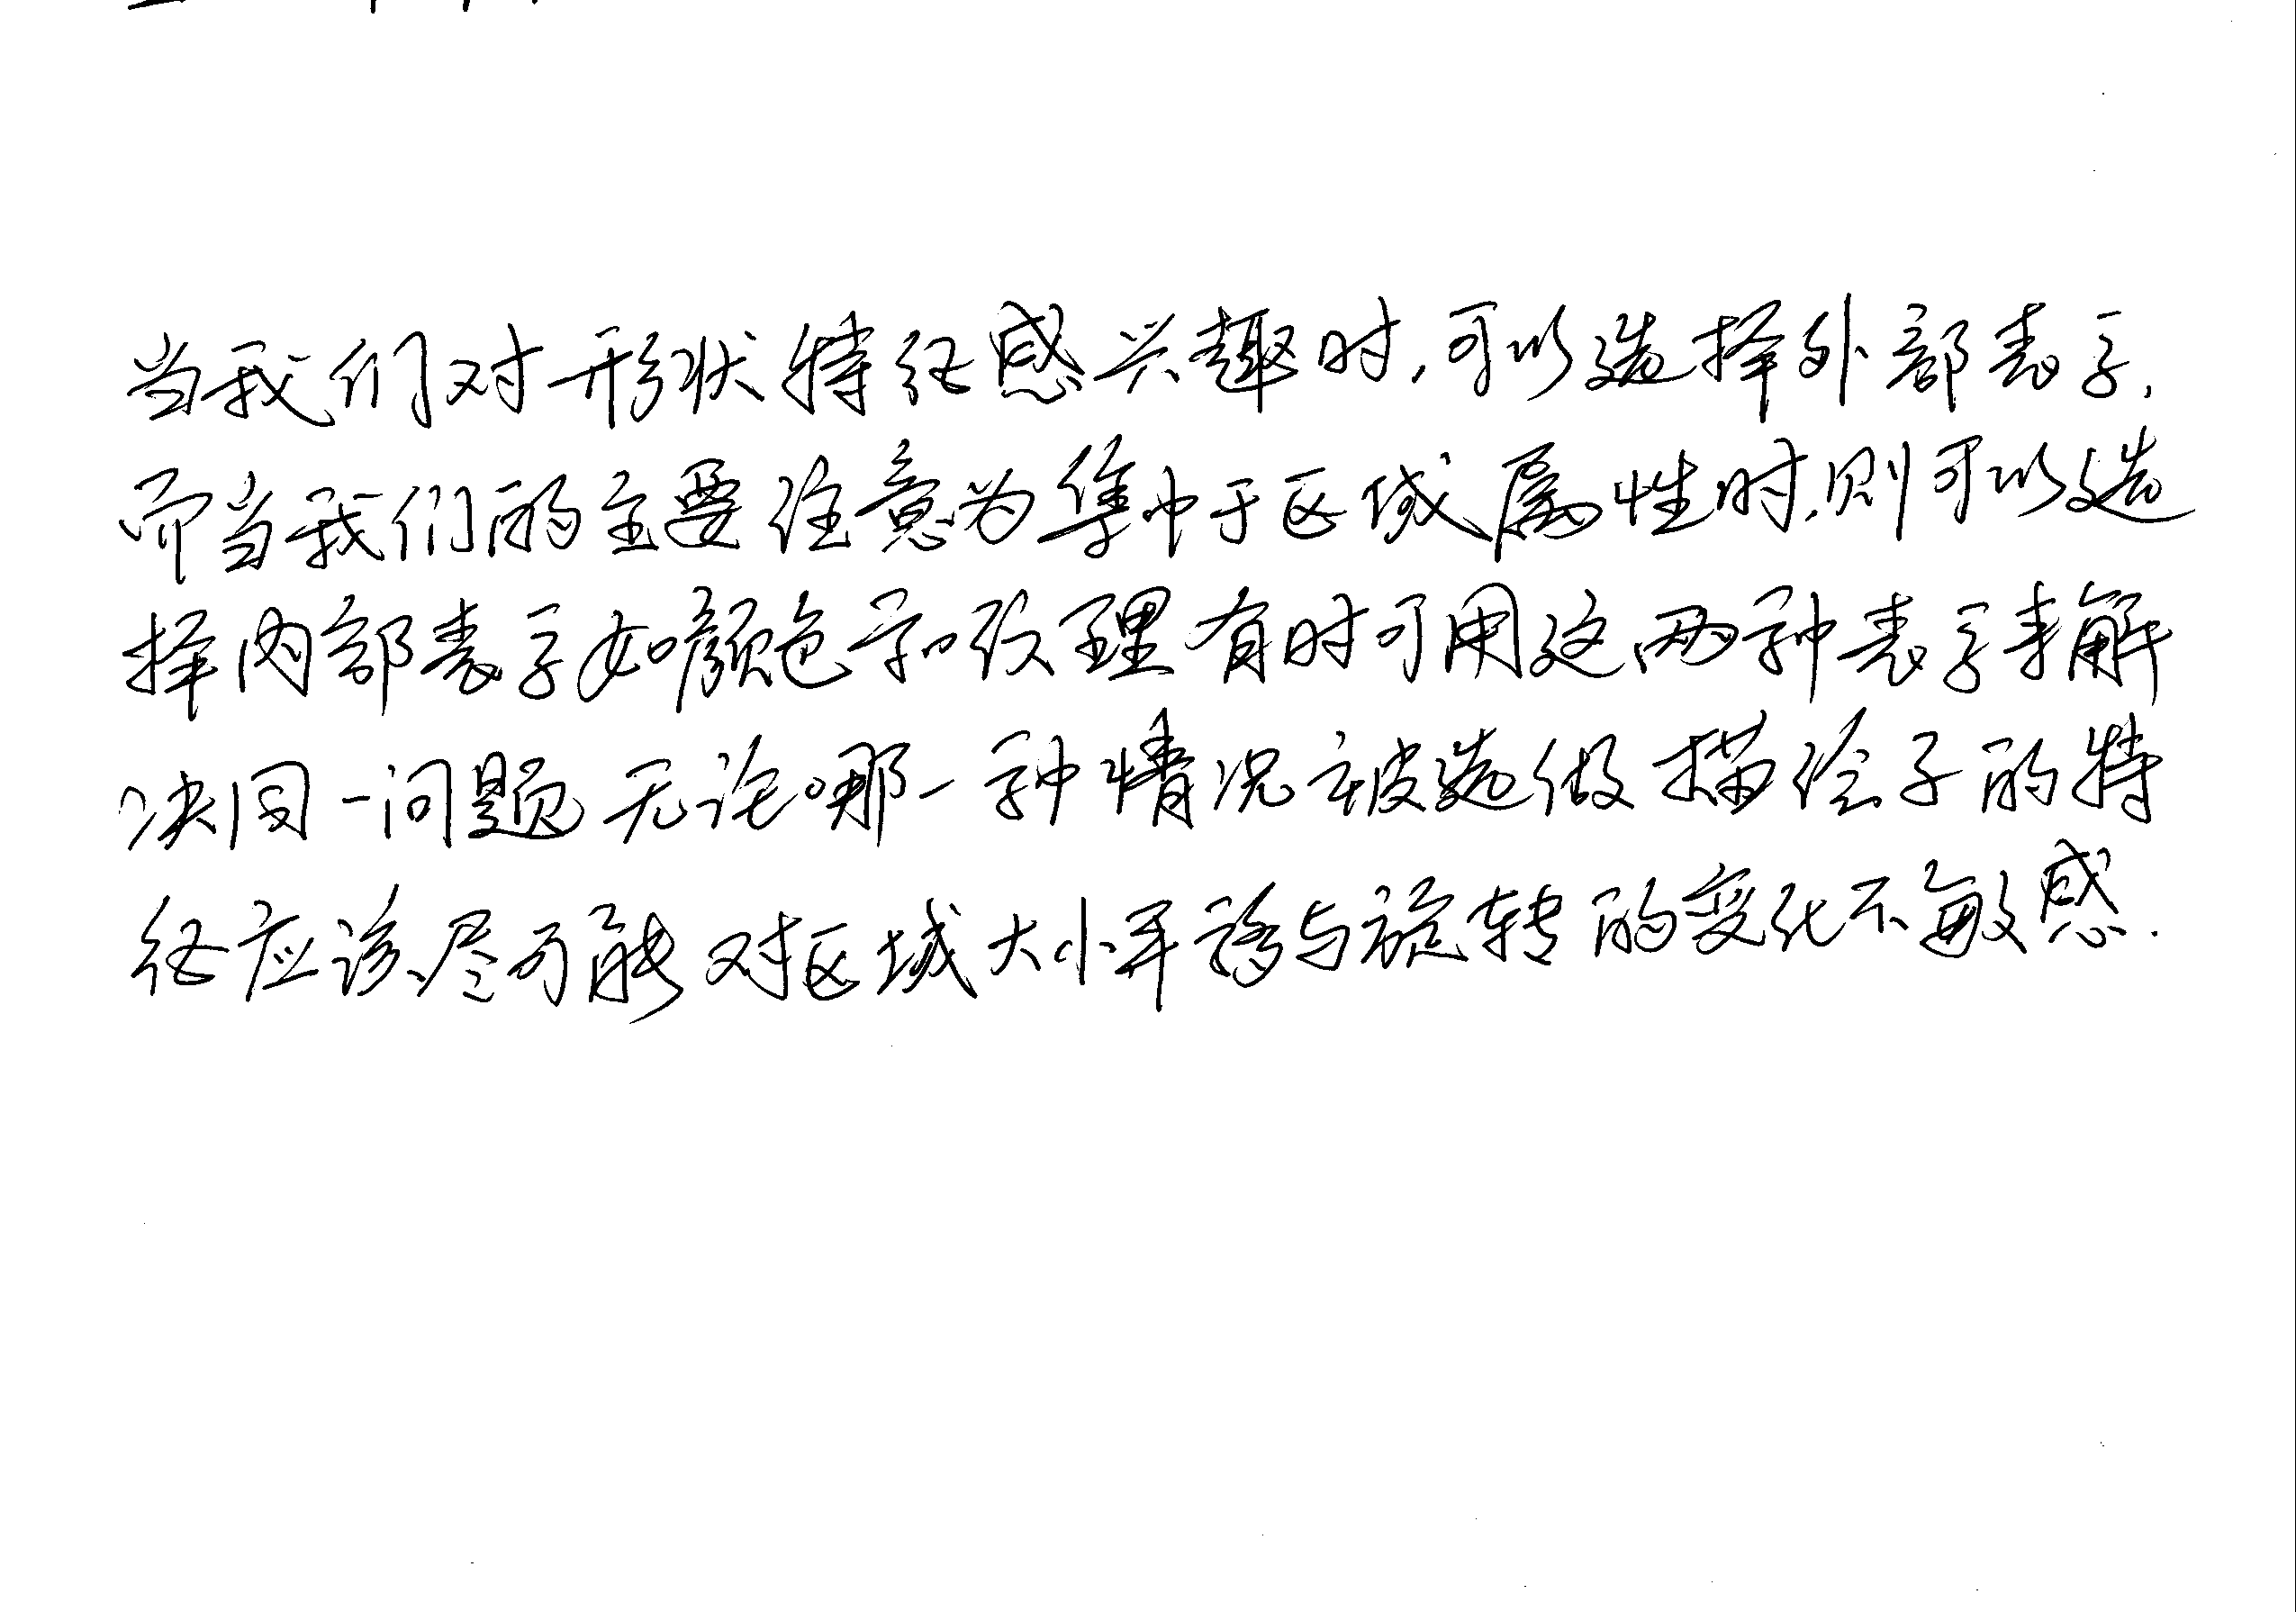 当我们对形状特征感兴趣时,可以选择外部表示,
而当我们的主要注意为集中于区域属性时,则可以选
择内部表示如颜色和纹理有时可用这两种表示来解
决同一问题无论哪一种情况被选做描绘子的特
征应该尽可能对区域大小平移与旋转的变化不敏感.